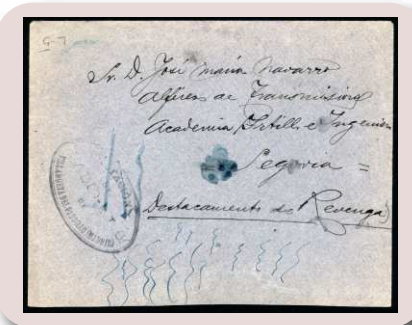 G-7
Sr. D. José María Navarro
Alférez de Transmisiones
Academia Artill. e Ingenieros
Segovia =
Destacamento de Revenga